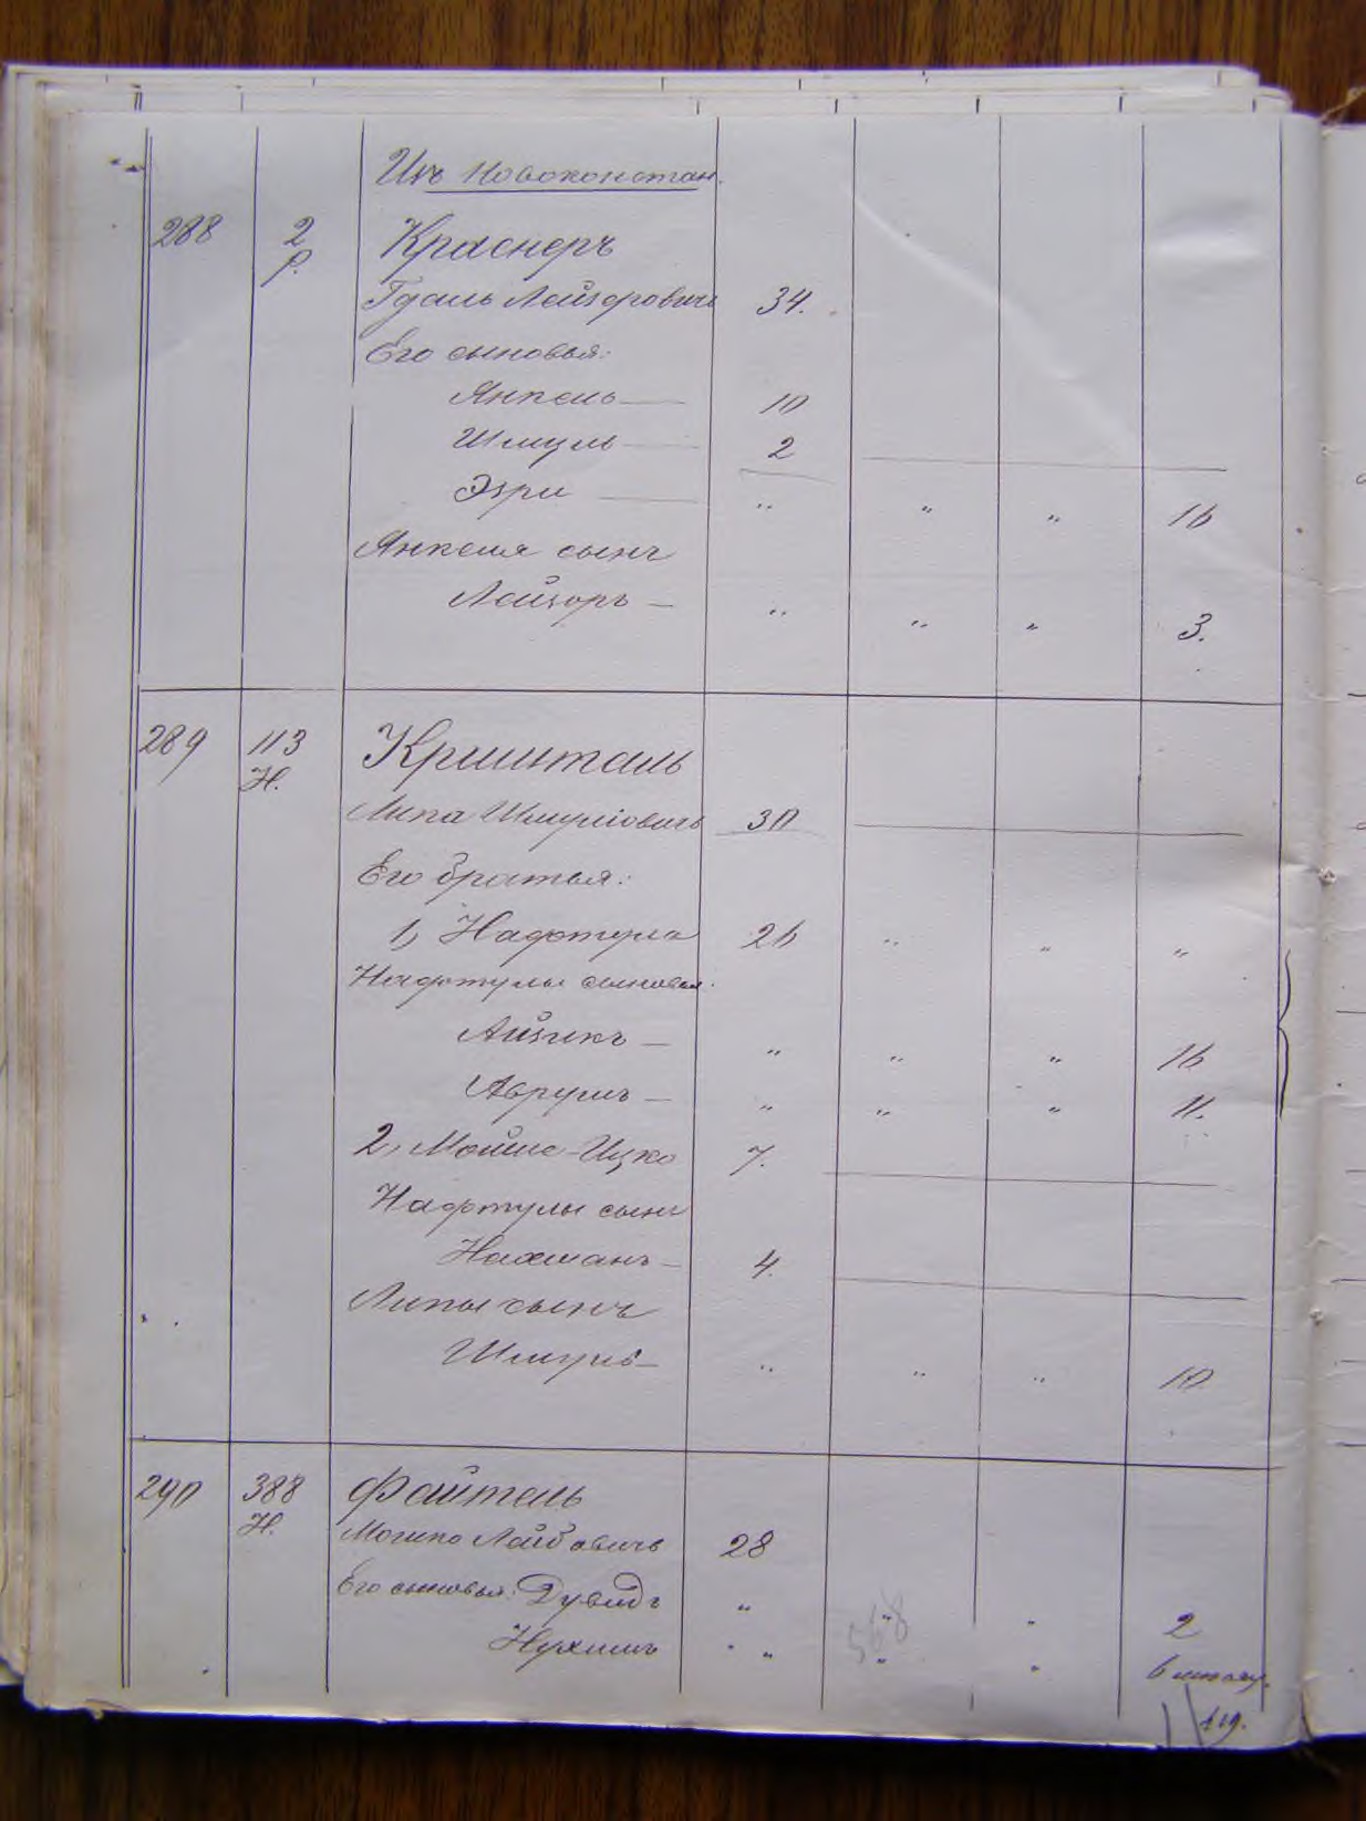 Изъ Новоконстан.
288 2 Краснеръ
р.
Гдаль Лейзоровичъ 34.
Его сыновья:
Янкель — 10
Шмуль — 2
Эзри — " " " 16
Янкеля сынъ
Лейзоръ — " " " 3.
289 113 Кришталь
Н.
Липа Шмулiовичъ 30
Его братья:
1, Нафтула 26 " " "
Нафтулы сыновья:
Айзикъ — " " " 16
Аврумъ — " " " 11.
2, Мойше-Ицко 7.
Нафтулы сынъ
Нахманъ — 4.
Липы сынъ
Шмуль — " " " 10
290 388 Файтель
Н.
Мошко Лейбовичъ 28
Его сыновья: Дувидъ " " " 2
Нухимъ " " "
568